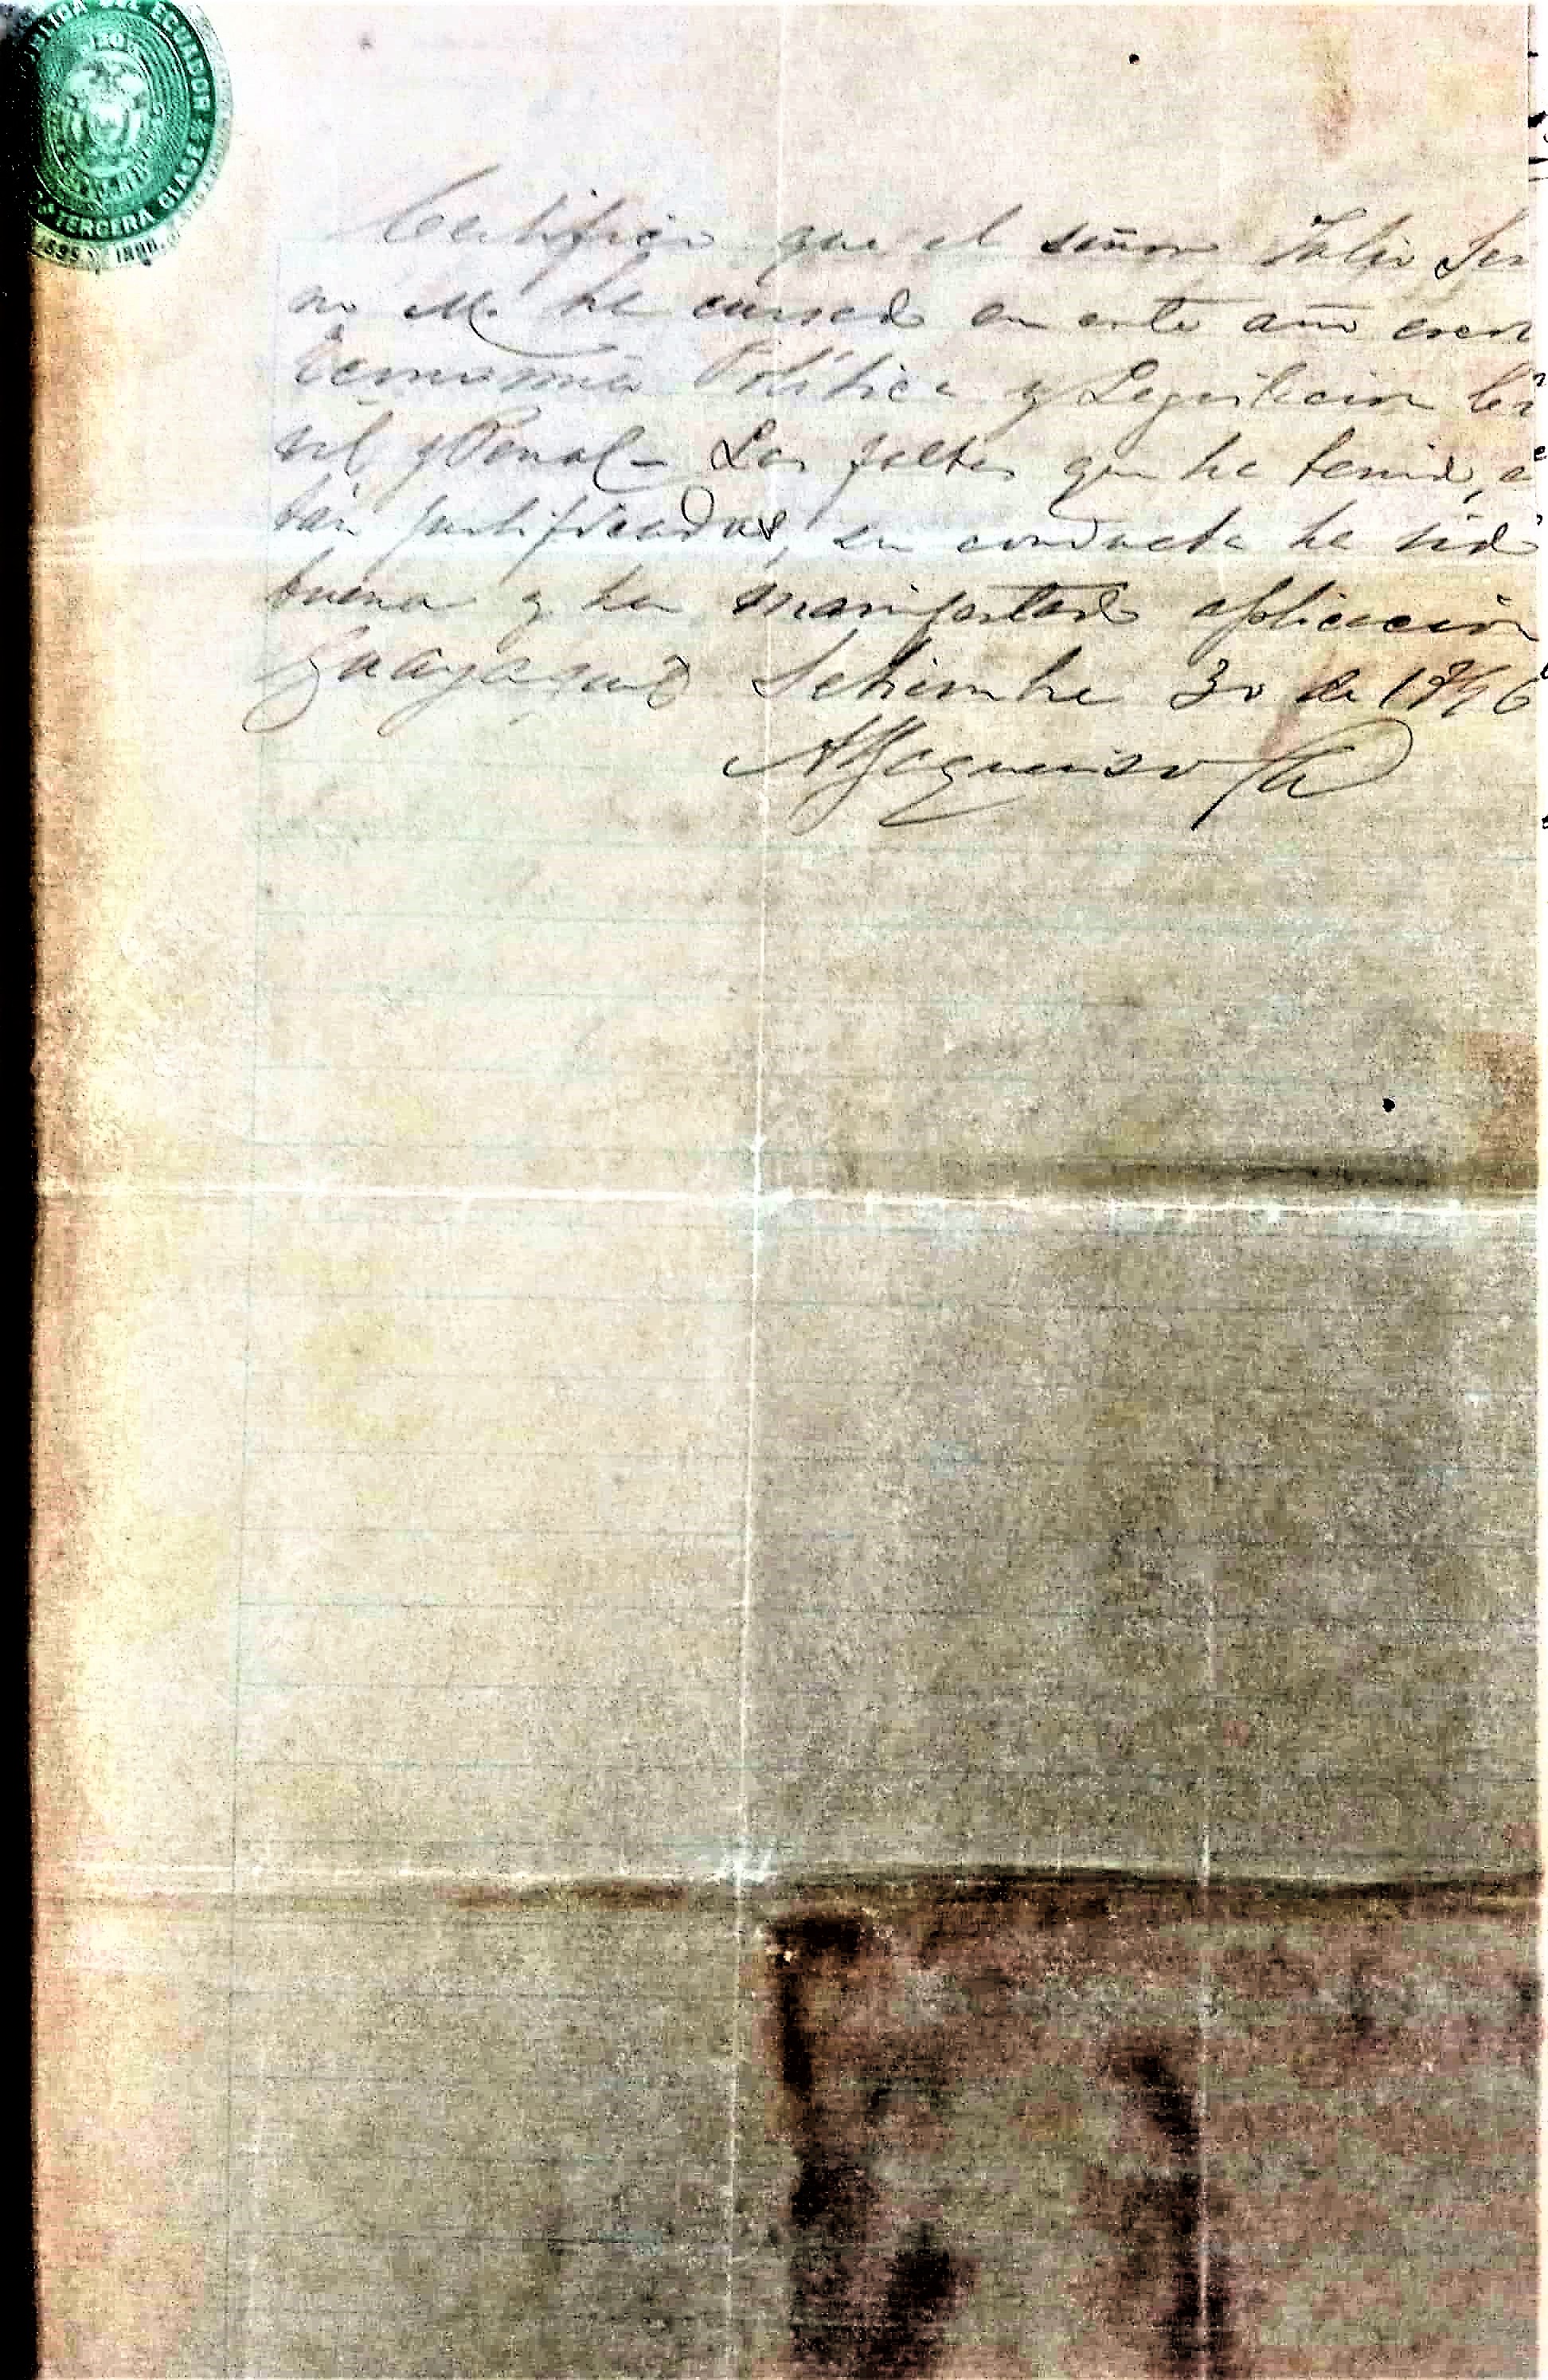 REPÚBLICA DEL ECUADOR
TERCERA CLASE
Certifico que el señor Julio Ser
no M. ha cursado en este año escol
Economía Política y Legislacion Ci
vil y Penal- Las faltas que ha tenido, es
tán justificadas, su conducta ha sido
buena y ha manifestado aplicación
Guayaquil Setiembre 30 de 1896